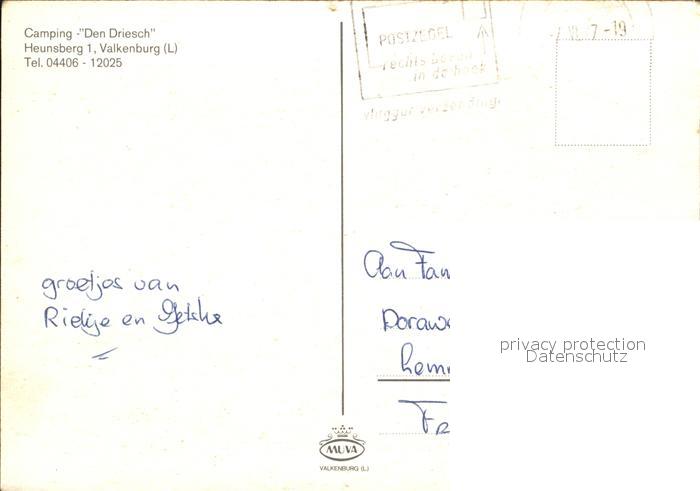 Camping -"Den Driesch"
Heunsberg 1, Valkenburg (L)
Tel. 04406 - 12025
POSTZEGEL
rechts boven
in de hoek
vlugger verzending.
7-19
groetjes van
Rietje en
Aan Fam
Doraw
Lem
Fr
privacy protection
Datenschutz
MUVA
VALKENBURG (L)